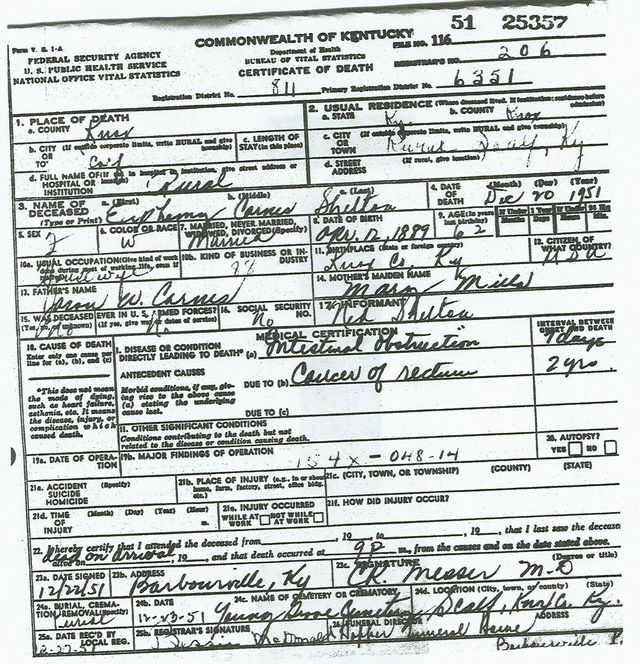 51 25357
COMMONWEALTH OF KENTUCKY
Form V. S. 1-A
FILE NO. 116
FEDERAL SECURITY AGENCY
Department of Health
U. S. PUBLIC HEALTH SERVICE
BUREAU OF VITAL STATISTICS
REGISTRAR'S NO. 206
NATIONAL OFFICE VITAL STATISTICS
CERTIFICATE OF DEATH
Registration District No. 811 Primary Registration District No. 6351
1. PLACE OF DEATH
2. USUAL RESIDENCE (Where deceased lived. If institution: residence before admission)
a. COUNTY Knox
a. STATE Ky. b. COUNTY Knox
b. CITY (If outside corporate limits, write RURAL and give township) OR TOWN
c. LENGTH OF STAY (in this place)
c. CITY (If outside corporate limits, write RURAL and give township) OR TOWN Rural Ky
d. FULL NAME OF (If not in hospital or institution, give street address or location) HOSPITAL OR INSTITUTION Rural
d. STREET ADDRESS (If rural, give location)
3. NAME OF DECEASED (Type or Print) a. (First) b. (Middle) Carnes c. (Last) Shelton
4. DATE OF DEATH (Month) (Day) (Year) Dec 20 1951
5. SEX F
6. COLOR OR RACE W
7. MARRIED, NEVER MARRIED, WIDOWED, DIVORCED (Specify) Married
8. DATE OF BIRTH Apr. 12, 1889
9. AGE (In years last birthday) 62
10a. USUAL OCCUPATION (Give kind of work done during most of working life, even if retired) Housewife
10b. KIND OF BUSINESS OR INDUSTRY
11. BIRTHPLACE (State or foreign country) Knox Co. Ky
12. CITIZEN OF WHAT COUNTRY? USA
13. FATHER'S NAME W. Carnes
14. MOTHER'S MAIDEN NAME Mary Mills
15. WAS DECEASED EVER IN U. S. ARMED FORCES? (Yes, no, or unknown) (If yes, give war or dates of service)
16. SOCIAL SECURITY NO. No
17. INFORMANT Shelton
MEDICAL CERTIFICATION
INTERVAL BETWEEN ONSET AND DEATH
18. CAUSE OF DEATH
Enter only one cause per line for (a), (b), and (c)
I. DISEASE OR CONDITION DIRECTLY LEADING TO DEATH* (a) Intestinal Obstruction 7 days
ANTECEDENT CAUSES
DUE TO (b) Cancer of rectum 2 yrs.
*This does not mean the mode of dying, such as heart failure, asthenia, etc. It means the disease, injury, or complication which caused death.
Morbid conditions, if any, giving rise to the above cause (a) stating the underlying cause last.
DUE TO (c)
II. OTHER SIGNIFICANT CONDITIONS
Conditions contributing to the death but not related to the disease or condition causing death.
19a. DATE OF OPERATION
19b. MAJOR FINDINGS OF OPERATION
154X-048-14
20. AUTOPSY? YES NO
21a. ACCIDENT SUICIDE HOMICIDE (Specify)
21b. PLACE OF INJURY (e.g., in or about home, farm, factory, street, office bldg., etc.)
21c. (CITY, TOWN, OR TOWNSHIP) (COUNTY) (STATE)
21d. TIME OF INJURY (Month) (Day) (Year) (Hour) m.
21e. INJURY OCCURRED WHILE AT WORK NOT WHILE AT WORK
21f. HOW DID INJURY OCCUR?
22. I hereby certify that I attended the deceased from , 19 , to , 19 , that I last saw the deceased
dead on arrival, 19 , and that death occurred at 9P m., from the causes and on the date stated above.
23a. DATE SIGNED 12/22/51
23b. ADDRESS Barbourville, Ky
23c. SIGNATURE (Degree or title) CR. Messer M.D
24a. BURIAL, CREMATION, REMOVAL (Specify) Burial
24b. DATE 12-23-51
24c. NAME OF CEMETERY OR CREMATORY Young Grove Cemetery
24d. LOCATION (City, town, or county) (State) Scalf, Knox Co. Ky.
25a. DATE REC'D BY LOCAL REG. 12-27-51
25b. REGISTRAR'S SIGNATURE McDonald
26. FUNERAL DIRECTOR Hopper Funeral Home
ADDRESS Barbourville